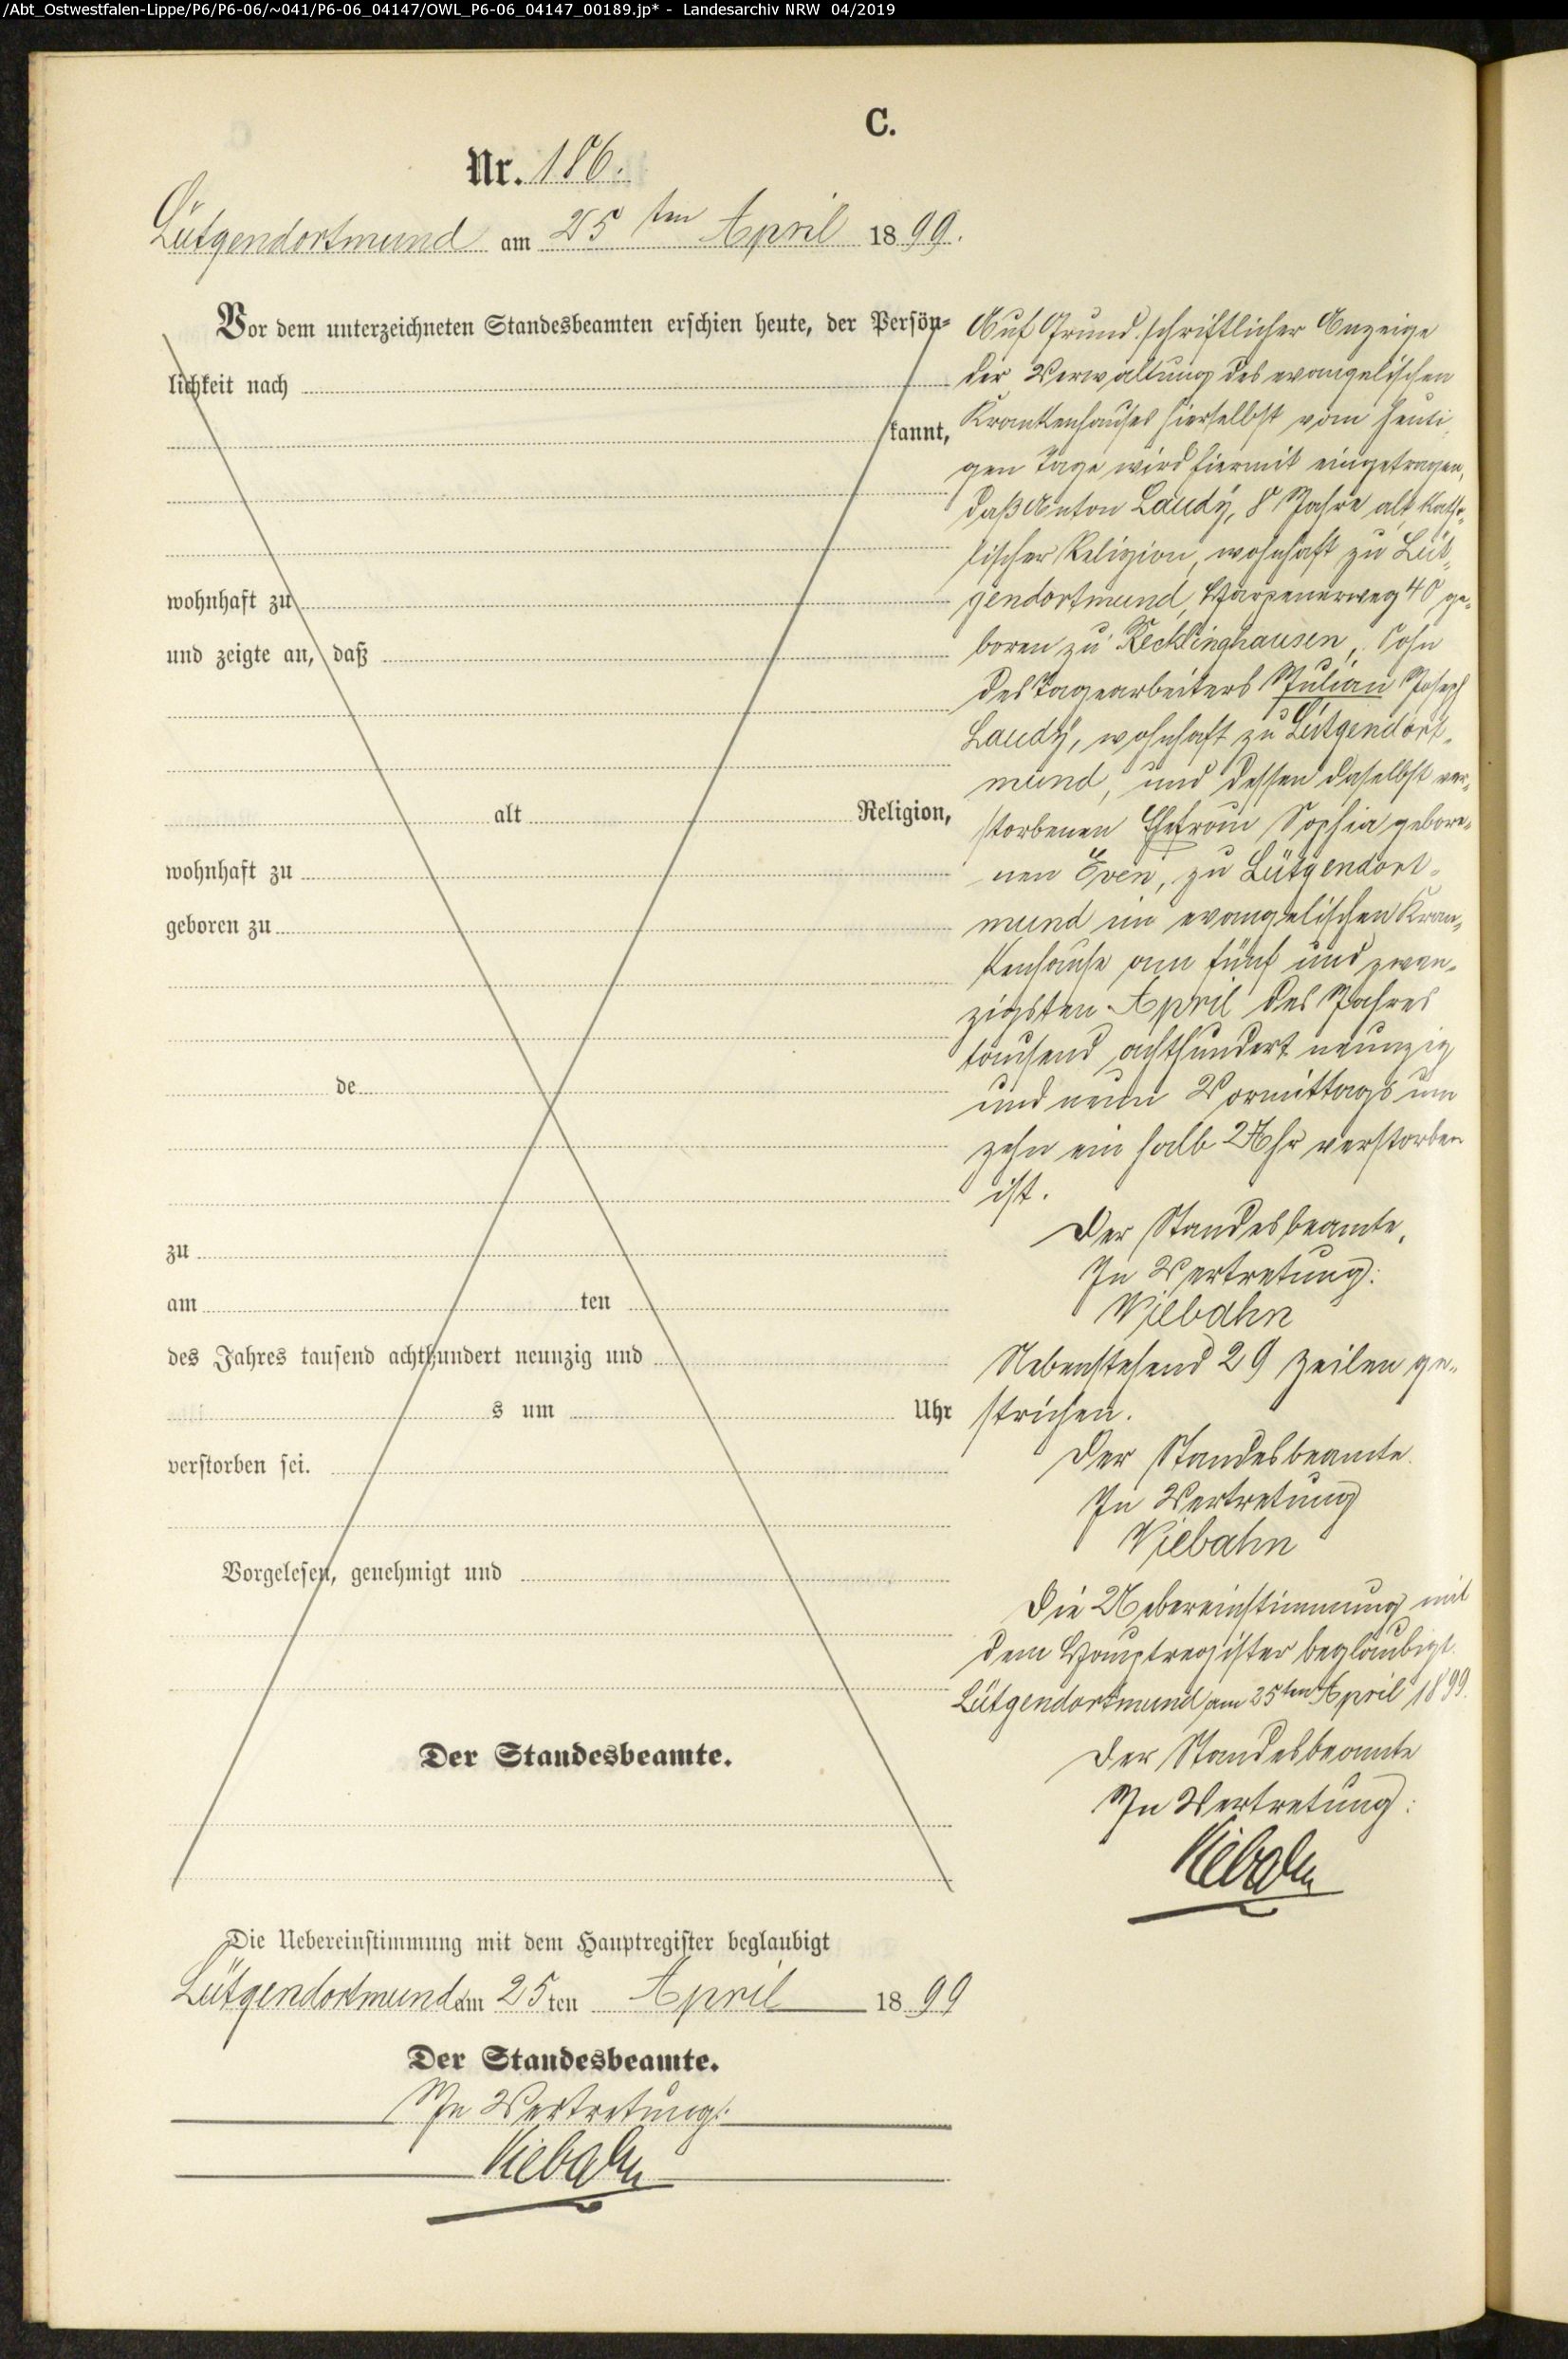 /Abt_Ostwestfalen-Lippe/P6/P6-06/~041/P6-06_04147/OWL_P6-06_04147_00189.jp* - Landesarchiv NRW 04/2019
C.
Nr. 186.
Lütgendortmund am 25 ten April 1899.
Vor dem unterzeichneten Standesbeamten erschien heute, der Persön-
lichkeit nach
kannt,
wohnhaft zu
und zeigte an, daß
alt Religion,
wohnhaft zu
geboren zu
de
zu
am ten
des Jahres tausend achthundert neunzig und
s um Uhr
verstorben sei.
Vorgelesen, genehmigt und
Der Standesbeamte.
Die Uebereinstimmung mit dem Hauptregister beglaubigt
Lütgendortmund am 25ten April 1899
Der Standesbeamte.
In Vertretung:
Viebahn
Auf Grund schriftlicher Anzeige
der Verwaltung des evangelischen
Krankenhauses hierselbst vom heuti-
gen Tage wird hiermit eingetragen,
daß Anton Laudÿ, 8 Jahre alt, katho-
lischer Religion, wohnhaft zu Lüt-
gendortmund, Harpenerweg 40 ge-
boren zu Recklinghausen, Sohn
des Tagearbeiters Julian Joseph
Laudÿ, wohnhaft zu Lütgendort-
mund, und dessen daselbst ver-
storbenen Ehefrau Sophia gebore-
nen Even, zu Lütgendort-
mund im evangelischen Kran-
kenhause am fünf und zwan-
zigsten April des Jahres
tausend achthundert neunzig
und neun Vormittags um
zehn ein halb Uhr verstorben
ist.
Der Standesbeamte,
In Vertretung:
Viebahn
Nebenstehend 29 Zeilen ge-
strichen.
Der Standesbeamte.
In Vertretung
Viebahn
Die Uebereinstimmung mit
dem Hauptregister beglaubigt.
Lütgendortmund am 25ten April 1899.
Der Standesbeamte
In Vertretung:
Viebahn